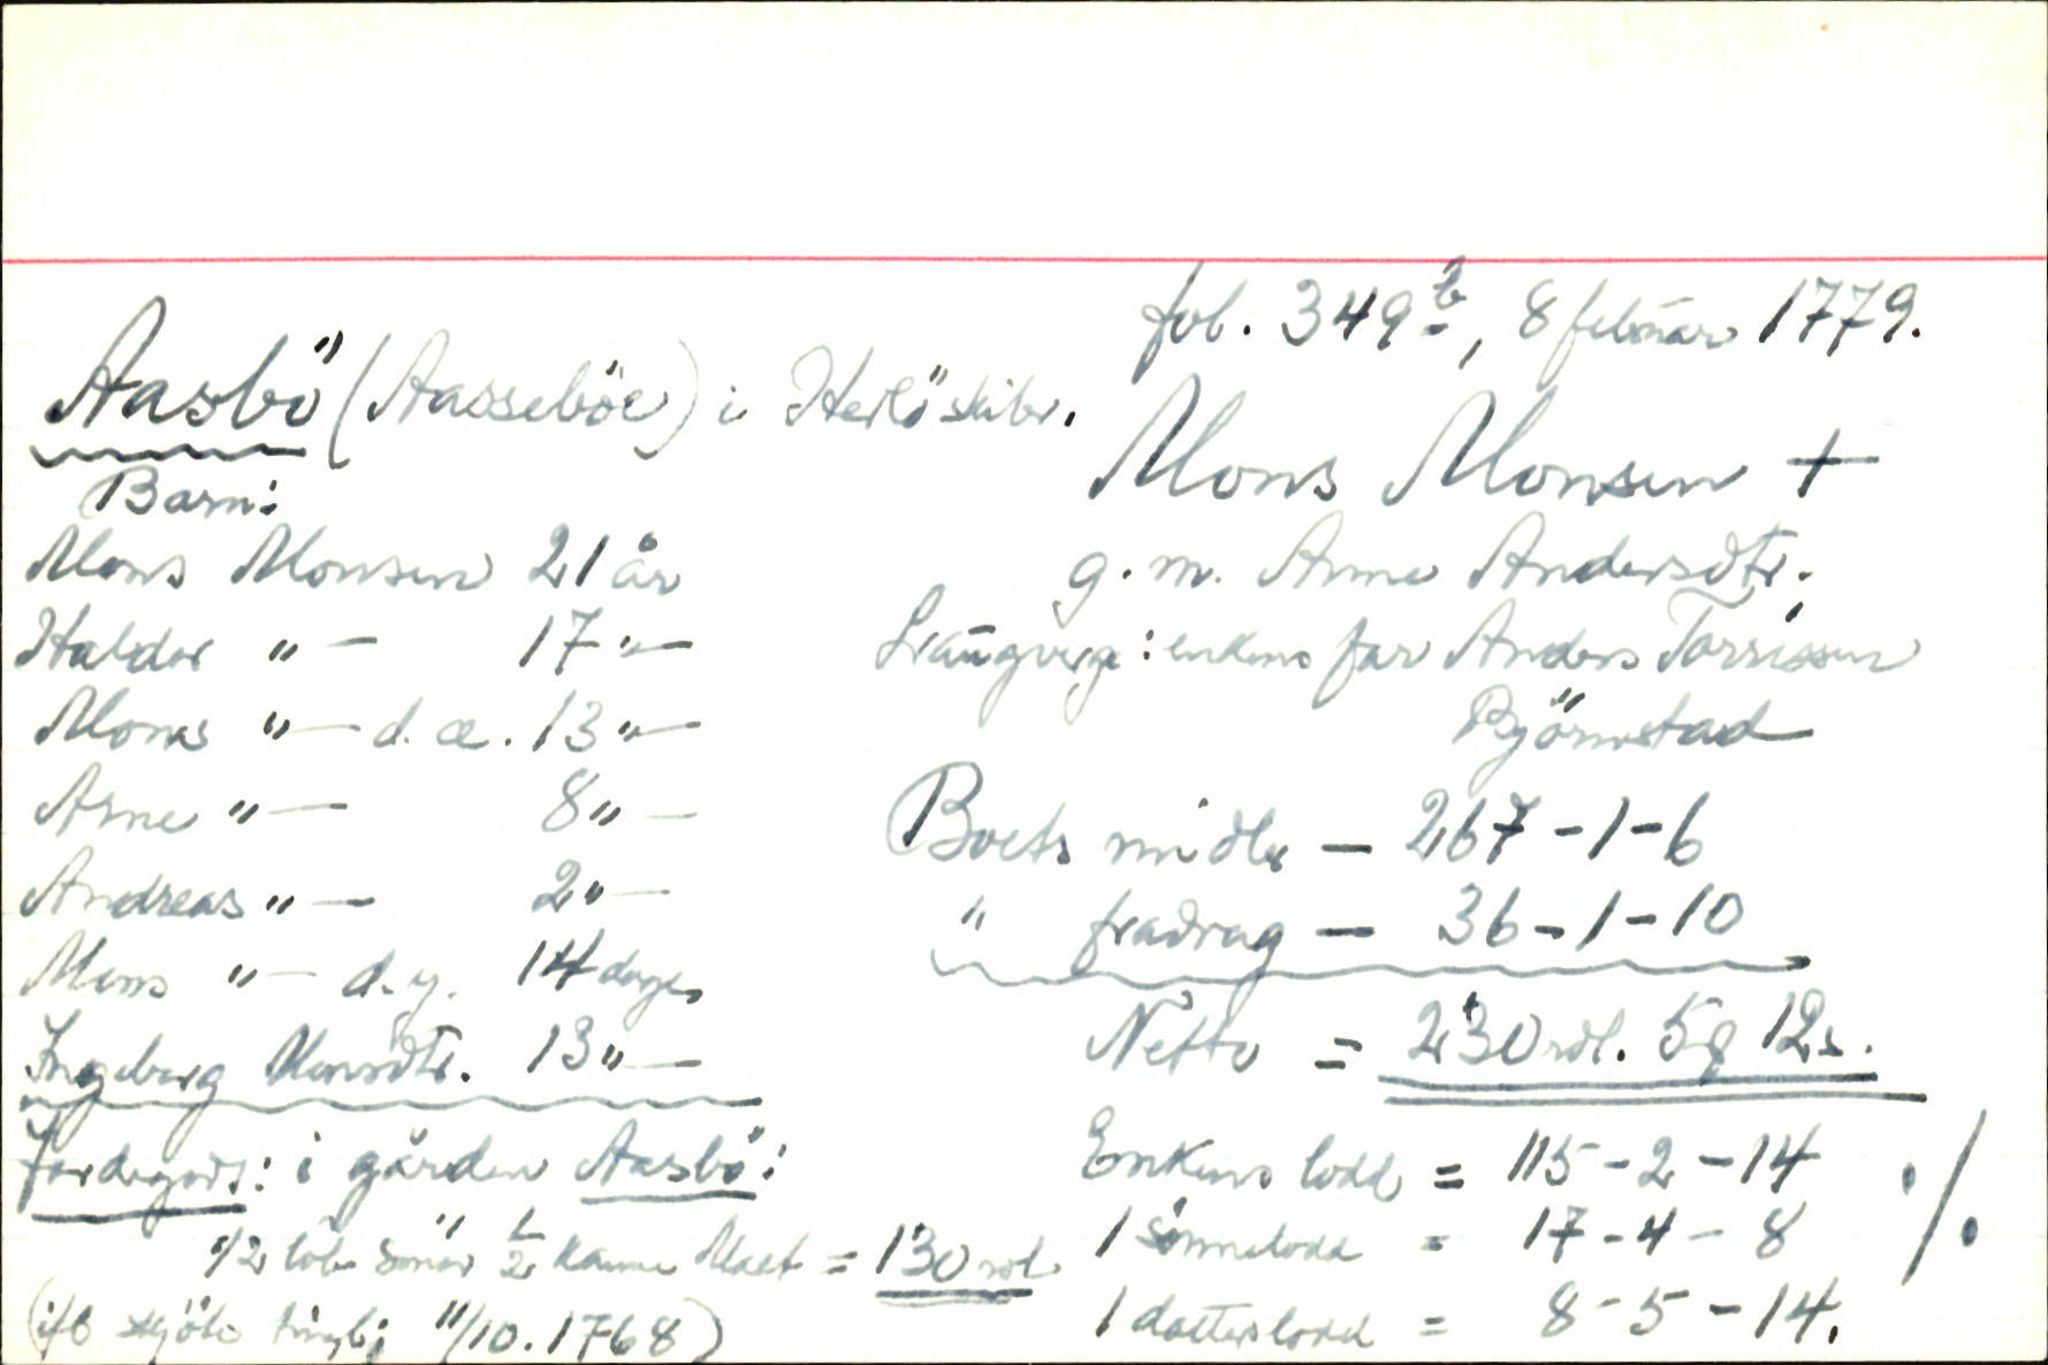 fol. 349b, 8 februar 1779.
Aasbö (Aasseböe) i Herlö skibr.
Mons Monsen +
g. m. Anne Andersdtr.
Laugverge: enkens far Anders Torrissen
Björnestad
Barn:
Mons Monsen 21 år
Haldor " — 17 " —
Mons " — d. æ. 13 " —
Arne " — 8 " —
Andreas " — 2 " —
Mons " — d. y. 14 dage
Ingeborg Monsdtr. 13 " —
Jordegods: i gården Aasbö:
1/2 löb smör 1/2 kanne Malt = 130 rdl.
(ifb skjöte tingl. 11/10. 1768)
Boets midler — 267 - 1 - 6
" fradrag — 36 - 1 - 10
Netto = 230 rdl. 5 12 s.
Enkens lodd = 115 - 2 - 14
1 sönnelodd = 17 - 4 - 8
1 datterslodd = 8 - 5 - 14.
./.